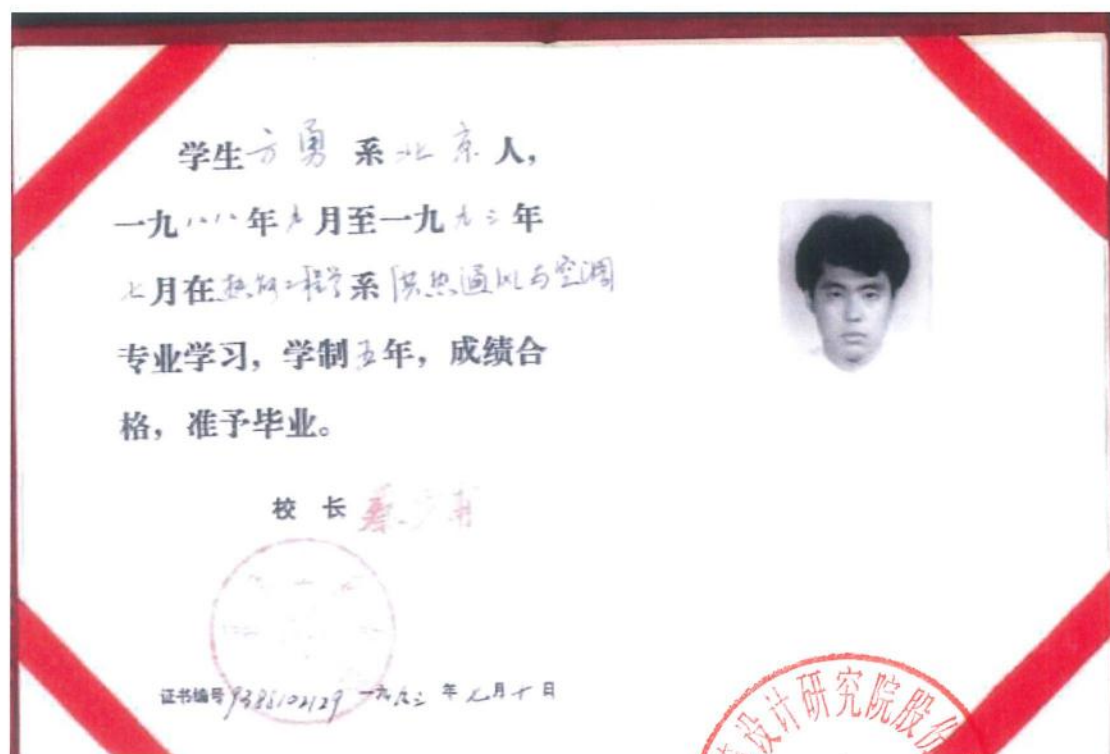 学生方勇系北京人,
一九八八年九月至一九九三年
七月在热能工程学系供热通风与空调
专业学习,学制五年,成绩合
格,准予毕业。
校 长
证书编号 一九九三年七月十日
设计研究院股份